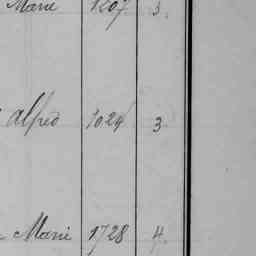 Marie 1207 3
Alfred 1024 3
Marie 1728 4